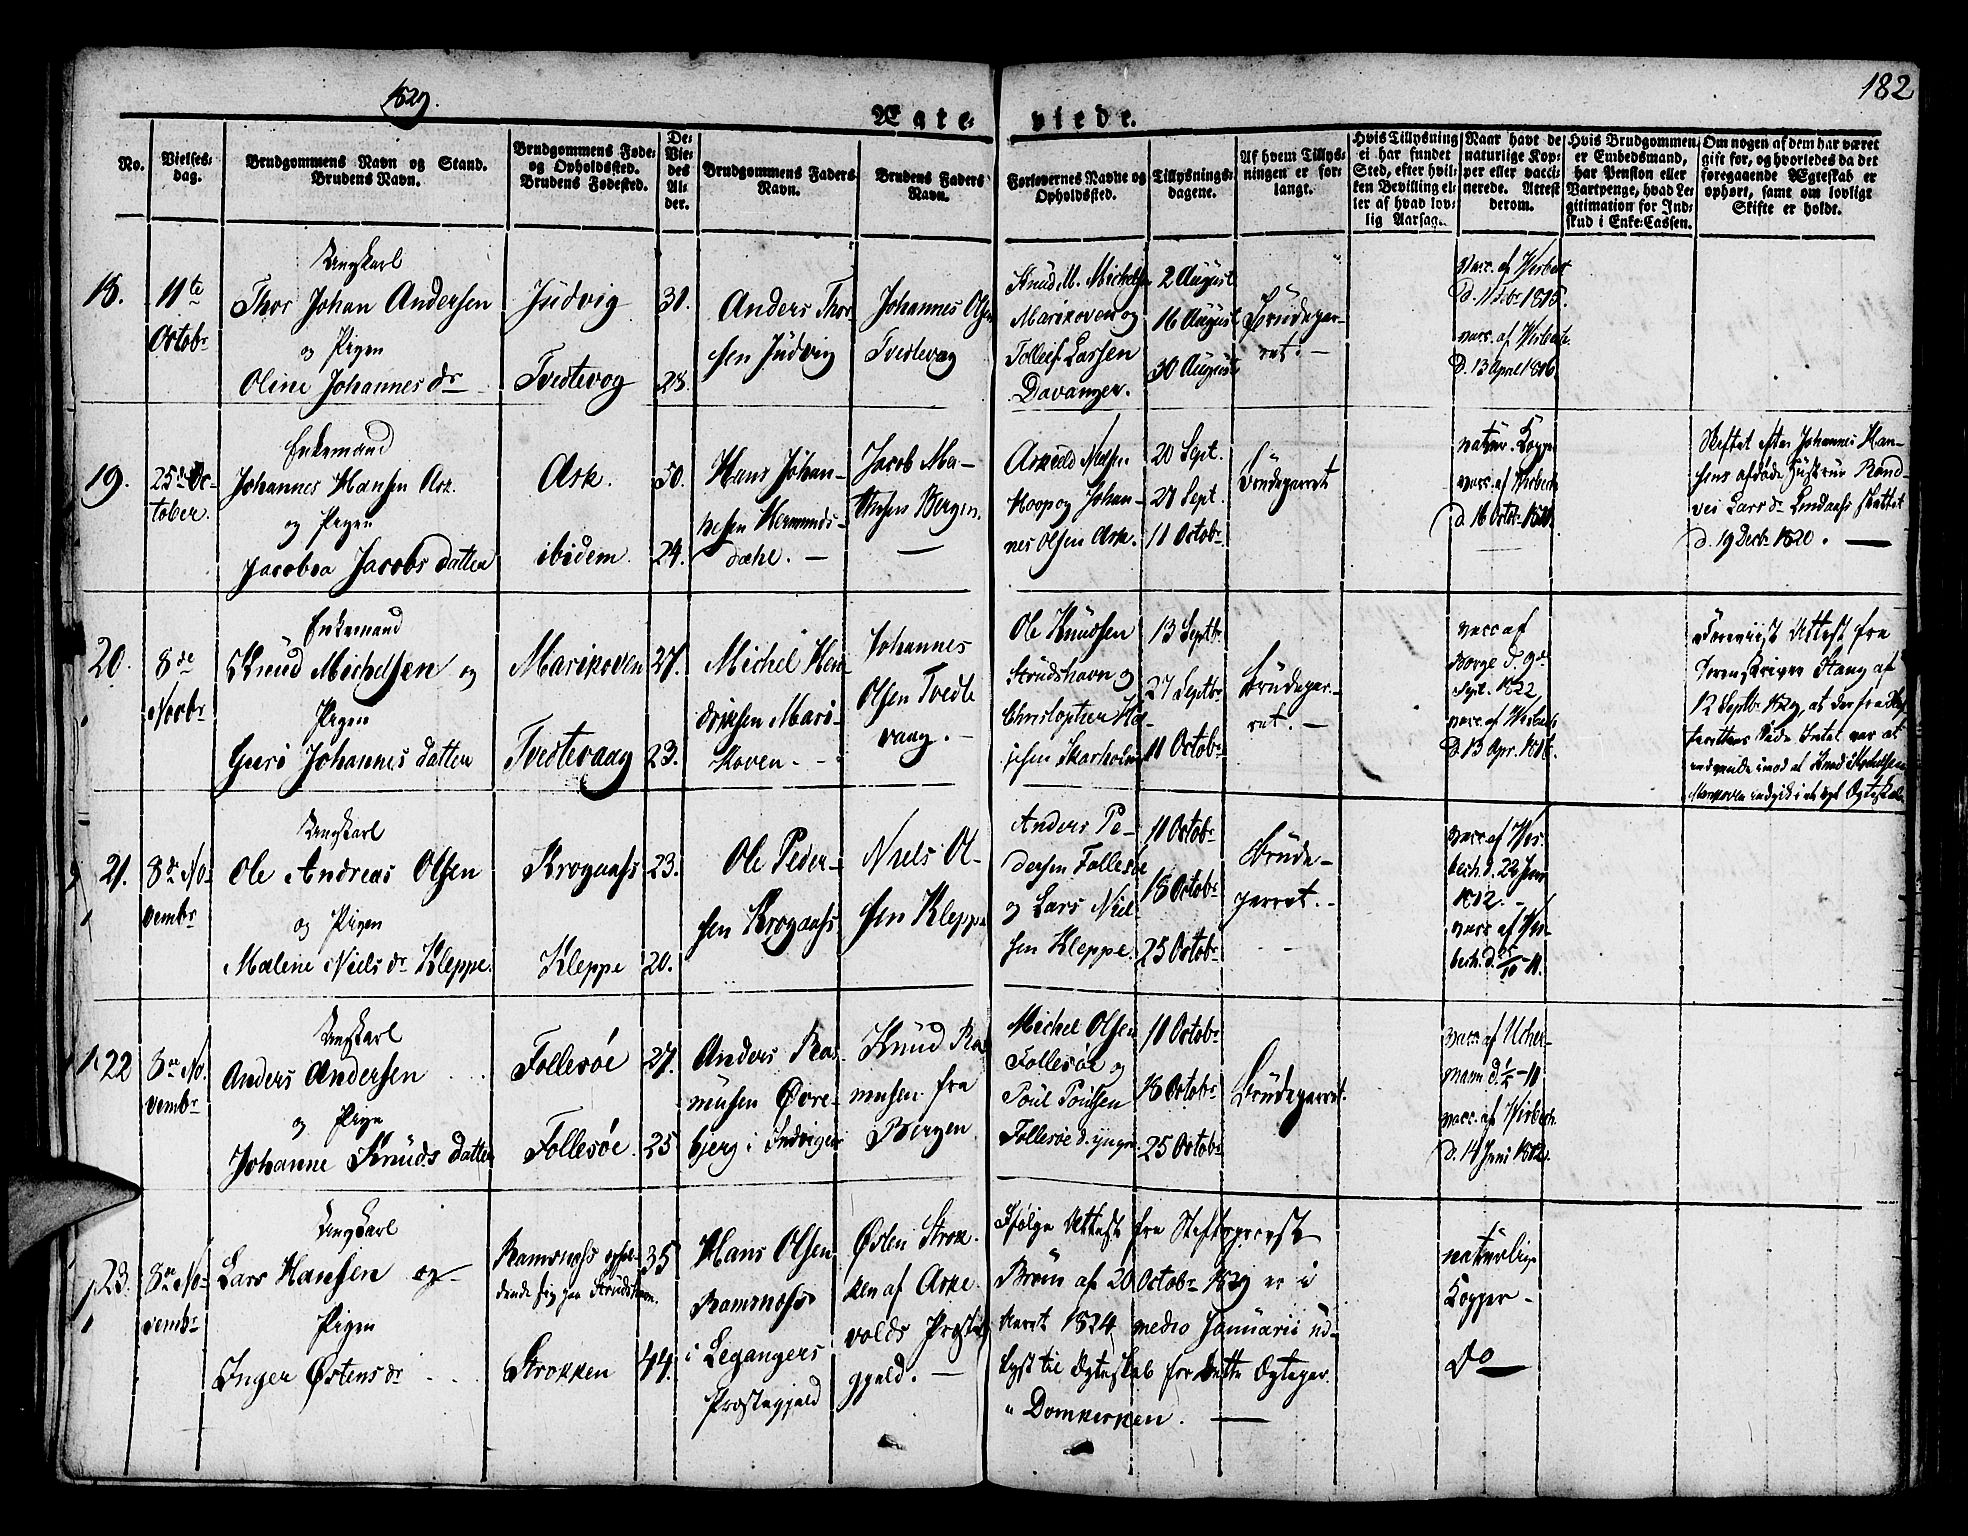 1829.
182
Ægte-
viede.
No.
Vielses-
dag.
Brudgommens Navn og Stand.
Brudens Navn.
Brudgommens Føde-
og Opholdssted.
Brudens Fødested.
De
Vie-
des
Al-
der.
Brudgommens Faders
Navn.
Brudens Faders
Navn.
Forlovernes Navne og
Opholdssted.
Tillysnings-
dagene.
Af hvem Tillys-
ningen er for-
langt.
Hvis Tillysning
ei har fundet
Sted, efter hvil-
ken Bevilling el-
ler af hvad lov-
lig Aarsag.
Naar havt de
naturlige Kop-
per eller vacci-
nerede. Attest
derom.
Hvis Brudgommen
er Embedsmand,
har Pension eller
Vartpenge, hvad Le-
gitimation for Ind-
skud i Enke-Cassen.
Om nogen af dem har været
gift før, og hvorledes da det
foregaaende Ægteskab er
ophørt, samt om lovligt
Skifte er holdt.
18.
11te
Octobr
Ungkarl
Thor Johan Andersen
og Pigen
Oline Johannes dr
Judvig
Tvedtevog
31.
28.
Anders Thor-
sen Judvig
Johannes Olsen
Tvedtevaag
Knud M. Michelsen
Marikoven og
Tollef Larsen
Davanger.
2 August
16 August
30 August
Brudegar-
ret. -
vacc. af Wisbech
d. 1815.
vacc. af Wisbech
d. 13 April 1816.
19.
25de Oc-
tober.
Enkemand
Johannes Hansen Ask.
og Pigen
Jacobea Jacobs datter
Ask.
ibidem.
50.
24.
Hans Johan-
nesen Hermunds-
dæhl. -
Jacob Ma-
thisen Bergen.
Askild Nilsen
Hoop og Johan-
nes Olsen Ask.
20 Sept.
27 Sept.
11 Octobr
Brudegarret
natur. Kopper
vacc. af Wisbech
d. 16 Octbr
Skiftet efter Johannes Han-
sens afdøde Hustrue Rand-
vei Lars dr Lindaas sluttet
d. 19 Decbr 1820. -
20.
8de
Novbr
Enkemand
Knud Michelsen og
Pigen
Guri Johannes datter
Marikoven
Tvedtevaag
27.
23.
Michel Hen-
driksen Mari-
koven. -
Johannes
Olsen Tvedte
vaag. -
Ole Knudsen
Strudshavn og
Christopher Ha-
Skarholm
13 Septbr
27 Septbr
11 Octobr
Brudegar-
ret. -
vacc af
Borge d. 9de
Sept. 1822
vacc. af Wisbech
d. 13 Apr. 1816.
Foreviist Attest fra
Sorenskriver Stang af
12 Septbr 1829, at der fra Skif-
terettens Side Intet var at
indvende imod at Knud Michelsen
Marikoven indgik i et nyt Ægteskab.
21.
8de No-
vembr
Ungkarl
Ole Andreas Olsen
og Pigen
Malene Niels dr Kleppe.
Krogaas
Kleppe
23.
20.
Ole Peder-
sen Krogaas
Niels Ol-
sen Kleppe
Anders Pe-
dersen Follesøe
og Lars Niel-
sen Kleppe.
11 Octobr
18 Octobr
25 Octobr
Brude-
garret. -
vacc. af Wis-
bech. d. 22 Juni
1812. -
vacc. af Wis-
bech. d. 25/10-11.
22
8de No-
vembr
Ungkarl
Anders Andersen
og Pige
Johanne Knuds datter
Follesøe
Follesøe.
27.
25
Anders Ras-
musen Øvre-
bjerg i Indvigen
Knud Ras-
musen fra
Bergen
Michel Olsen
Follesøe og
Poul Poulsen
Follesøe d. yngre.
11 Octobr
18 Octobr
25 Octobr
Brudegarret.
vacc. af Ucher-
mann d.
vacc. af Wisbech.
d. 14 Juni 1812.
23.
8de No-
vembr
Ungkarl
Lars Hansen og
Pigen
Inger Østens dr
Ramsnæs ophol-
dende sig paa Strudshavn.
Strokken
35
44.
Hans Olsen
Ramsnæs
i Legangers
Præstegjæld
Østen Strok-
ken af Aske-
volds Præste
gjæld. -
Ifølge Attest fra Stiftsprovst
Bruun af 20 Octobr 1829 er i
Aaret 1824 medio Januarii ud-
lyst til Ægteskab for dette Ægtepar.
i Domkirken. -
naturlige
Kopper -
Do